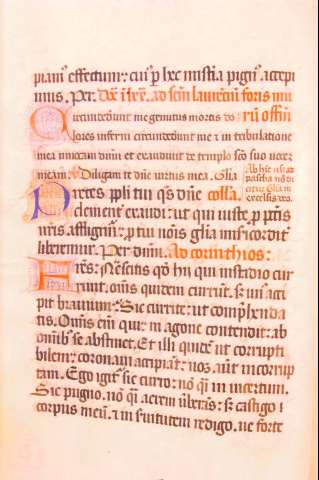 piam⁹ effectum: cui⁹ p̱ hec misti̅a pign⁹ accepi
mus. Per. Do̅e i̅ lxx̅. ad sc̅m laure̅ciu̅ foris mu
Circundederunt me gemitus mortis do ru̅ offm̅
lores inferni circundederunt me ⁊ in tribulatione
mea inuocaui dn̅m et exaudiuit de templo sc̅o suo uocem
meam. Diligam te dn̅e uirtus mea. Gl̅ia
Preces ppl̅i tui qs̅ dn̅e coll̅a.
clement̅ exaudi: ut qui iuste p̱ pct̅is
nr̅is affligim̅: p̱ tui no̅is gl̅ia mi̅sicordit̅
liberemur. Per dn̅m. Ad corinthios:
Fr̅es: Nescitis qd̅ hii qui in stadio cur
runt: om̅s quidem curru̅t: s̅ un⁹ acci
pit brauium: Sic currite: ut comp̱henda
tis. Om̅is eni̅ qui in agone contendit: ab
om̅ib⁹ se abstinet. Et illi quide̅ ut corrupti
bilem coronam accipiant: nos aut̅ incorrup
tam. Ego igit̅ sic curro: no̅ qi̅ in incertum.
Sic pugno. no̅ qi̅ aerem u̅berans: s̅ castigo
corpus meu̅. ⁊ in s̅uitutem redigo. ne forte